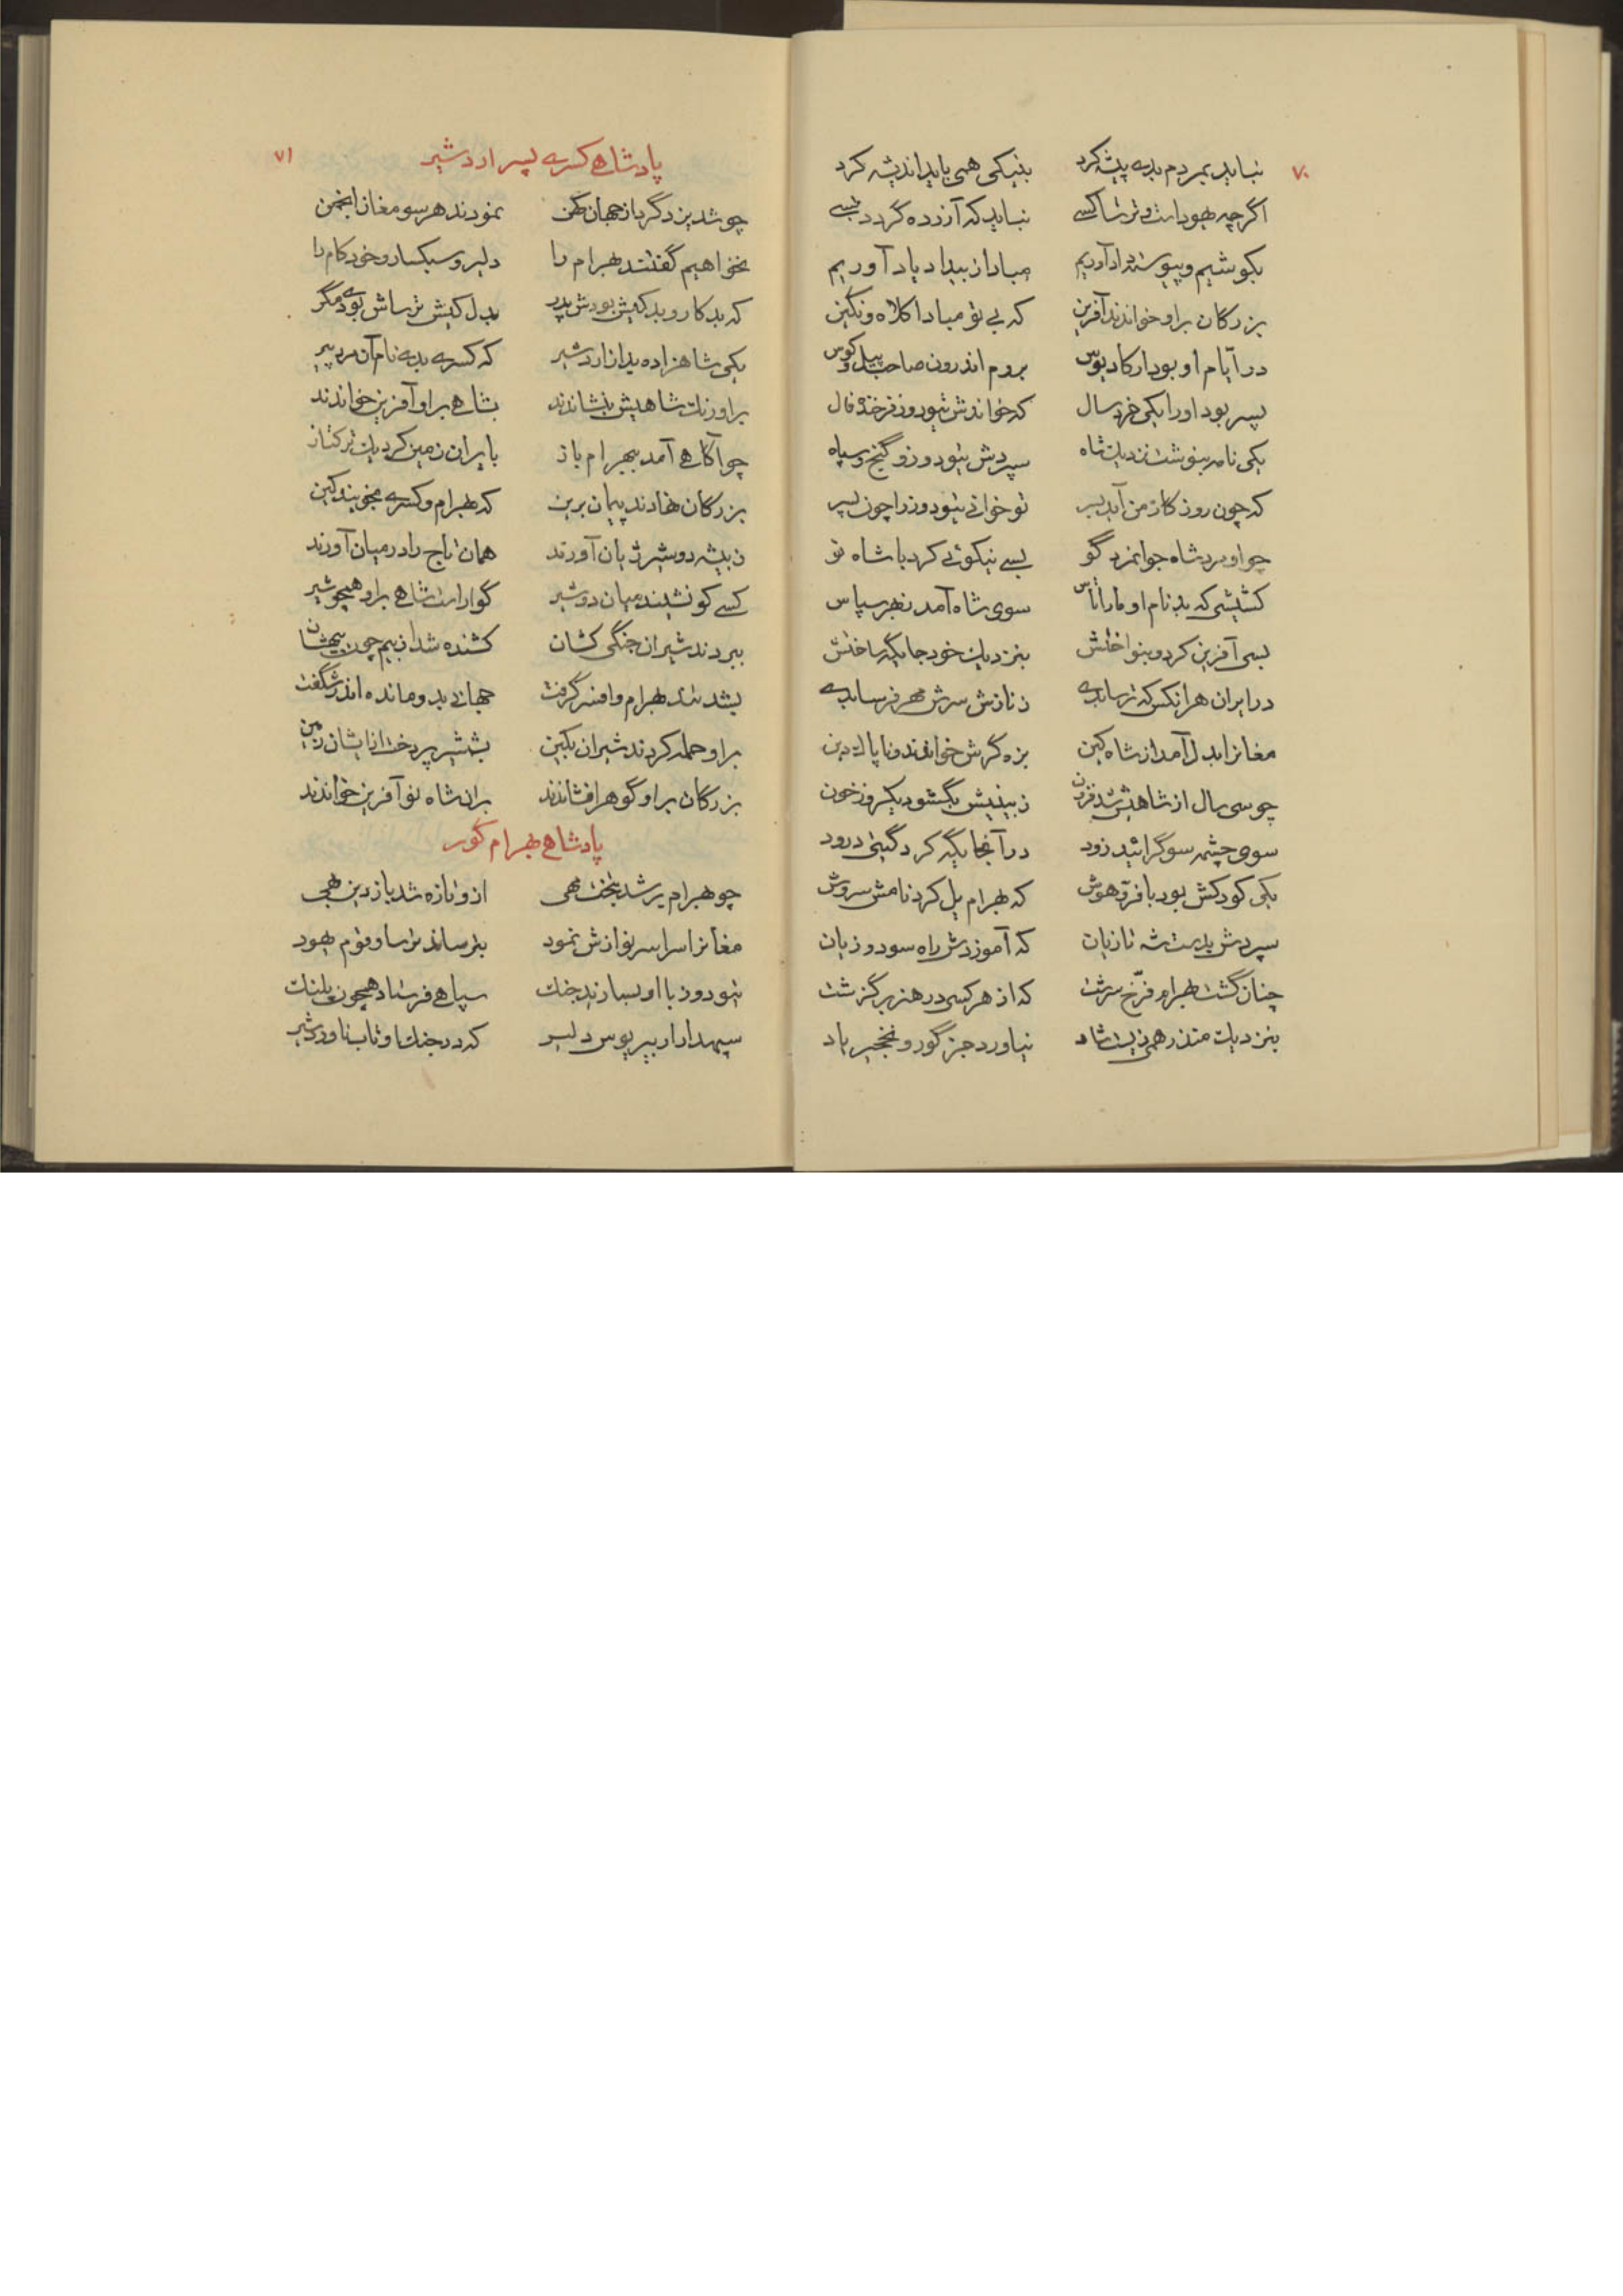 ۷۰
نباید بمردم بدی پیشه کرد بنیکی همی باید اندیشه کرد
اگرچه یهود است و ترسا کسی نباید که آزرده گردد بسی
بکوشیم و پیوسته داد آوریم مبادا ز بیداد یاد آوریم
بزرگان براو خواندند آفرین که بی تو مبادا کلاه و نگین
در ایام او بود ارکادیوس بروم اندرون صاحب پیل و کوس
پسر بود او را یکی خرد سال که خواندش تیودوز فرخنده فال
یکی نامه بنوشت نزدیک شاه سپردش تیودوز و گنج و سپاه
که چون روزگار من آید بسر تو خوانی تیودوز را چون پسر
چو او مرد شاه جوانمرد گو بسی نیکوئی کرد با شاه نو
کشیشی که بد نام او ماراثاس سوی شاه آمد بهر سپاس
بسی آفرین کرد و بنواختش بنزدیک خود جایگه ساختش
در ایران هر آنکس که ترسا بدی ز نازش سرش مهر فرسا بدی
مغانرا بدل آمد از شاه کین بزه گرش خواندند و ناپاک دین
چو سی سال از شاهیش شد فزون ز بینیش بگشود یکروز خون
سوی چشمه سو گرائید زود در آنجایگه کرد گیتی درود
یکی کودکش بود با فر و هوش که بهرام یل کرد نامش سروش
سپردش بدست شه تازیان که آموزدش راه سود و زیان
چنان گشت بهرام فرخ سرشت که از هر کسی در هنر بر گذشت
بنزدیک منذر همی زیست شاد نیاورد جز گور و نخجیر یاد
پادشاهی کسری پسر اردشیر ۷۱
چو شد یزدگرد از جهان کهن نمودند هر سو مغان انجمن
نخواهیم گفتند بهرام را دلیر و سبکسار و خودکام را
که بدکار و بدکیش بودش پدر بدل کیش ترساش بودی مگر
یکی شاهزاده بد از اردشیر که کسری بدی نام آن مرد پیر
براورنگ شاهیش بنشاندند بشاهی براو آفرین خواندند
چو آگاهی آمد ببهرام باز بایران زمین کرد یک ترکتاز
بزرگان نهادند پیمان برین که بهرام و کسری نجویند کین
ز بیشه دو شیر ژیان آورند همان تاج را در میان آورند
کسی کو نشیند میان دو شیر گوارا است شاهی براو همچو شیر
ببردند شیران جنگی کشان کشنده شد از بیم چون بیهشان
بشد تند بهرام و افسر گرفت جهانی بدو مانده اندر شگفت
براو حمله کردند شیران بکین بشمشیر پرداخت از ایشان زمین
بزرگان براو گوهر افشاندند بران شاه نو آفرین خواندند
پادشاهی بهرام گور
چو بهرام بر شد بتخت مهی ازو تازه شد باز دین بهی
مغانرا سراسر نوازش نمود بترساند ترسا و قوم یهود
تیودوز با او بسازید جنگ سپاهی فرستاد همچون پلنگ
سپهدار اربیریوس دلیر که در جنگ او تاب ناورد شیر